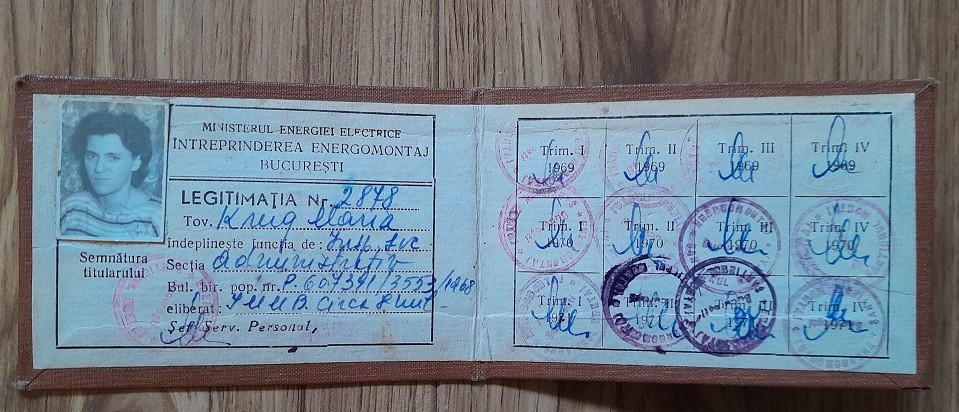 MINISTERUL ENERGIEI ELECTRICE
INTREPRINDEREA ENERGOMONTAJ
BUCUREȘTI
LEGITIMAȚIA Nr. 2878
Tov. Krug Maria
îndeplinește funcția de: Insp. Svc
Secția administrativ
Bul. bir. pop. nr. P. 607391/3553/1968
eliberat:
Șef Serv. Personal,
Semnătura
titularului
Trim. I Trim. II Trim. III Trim. IV
1969 1969 1969 1969
Trim. I Trim. II Trim. III Trim. IV
1970 1970 1970 1970
Trim. I Trim. IV
1971 1971 1971